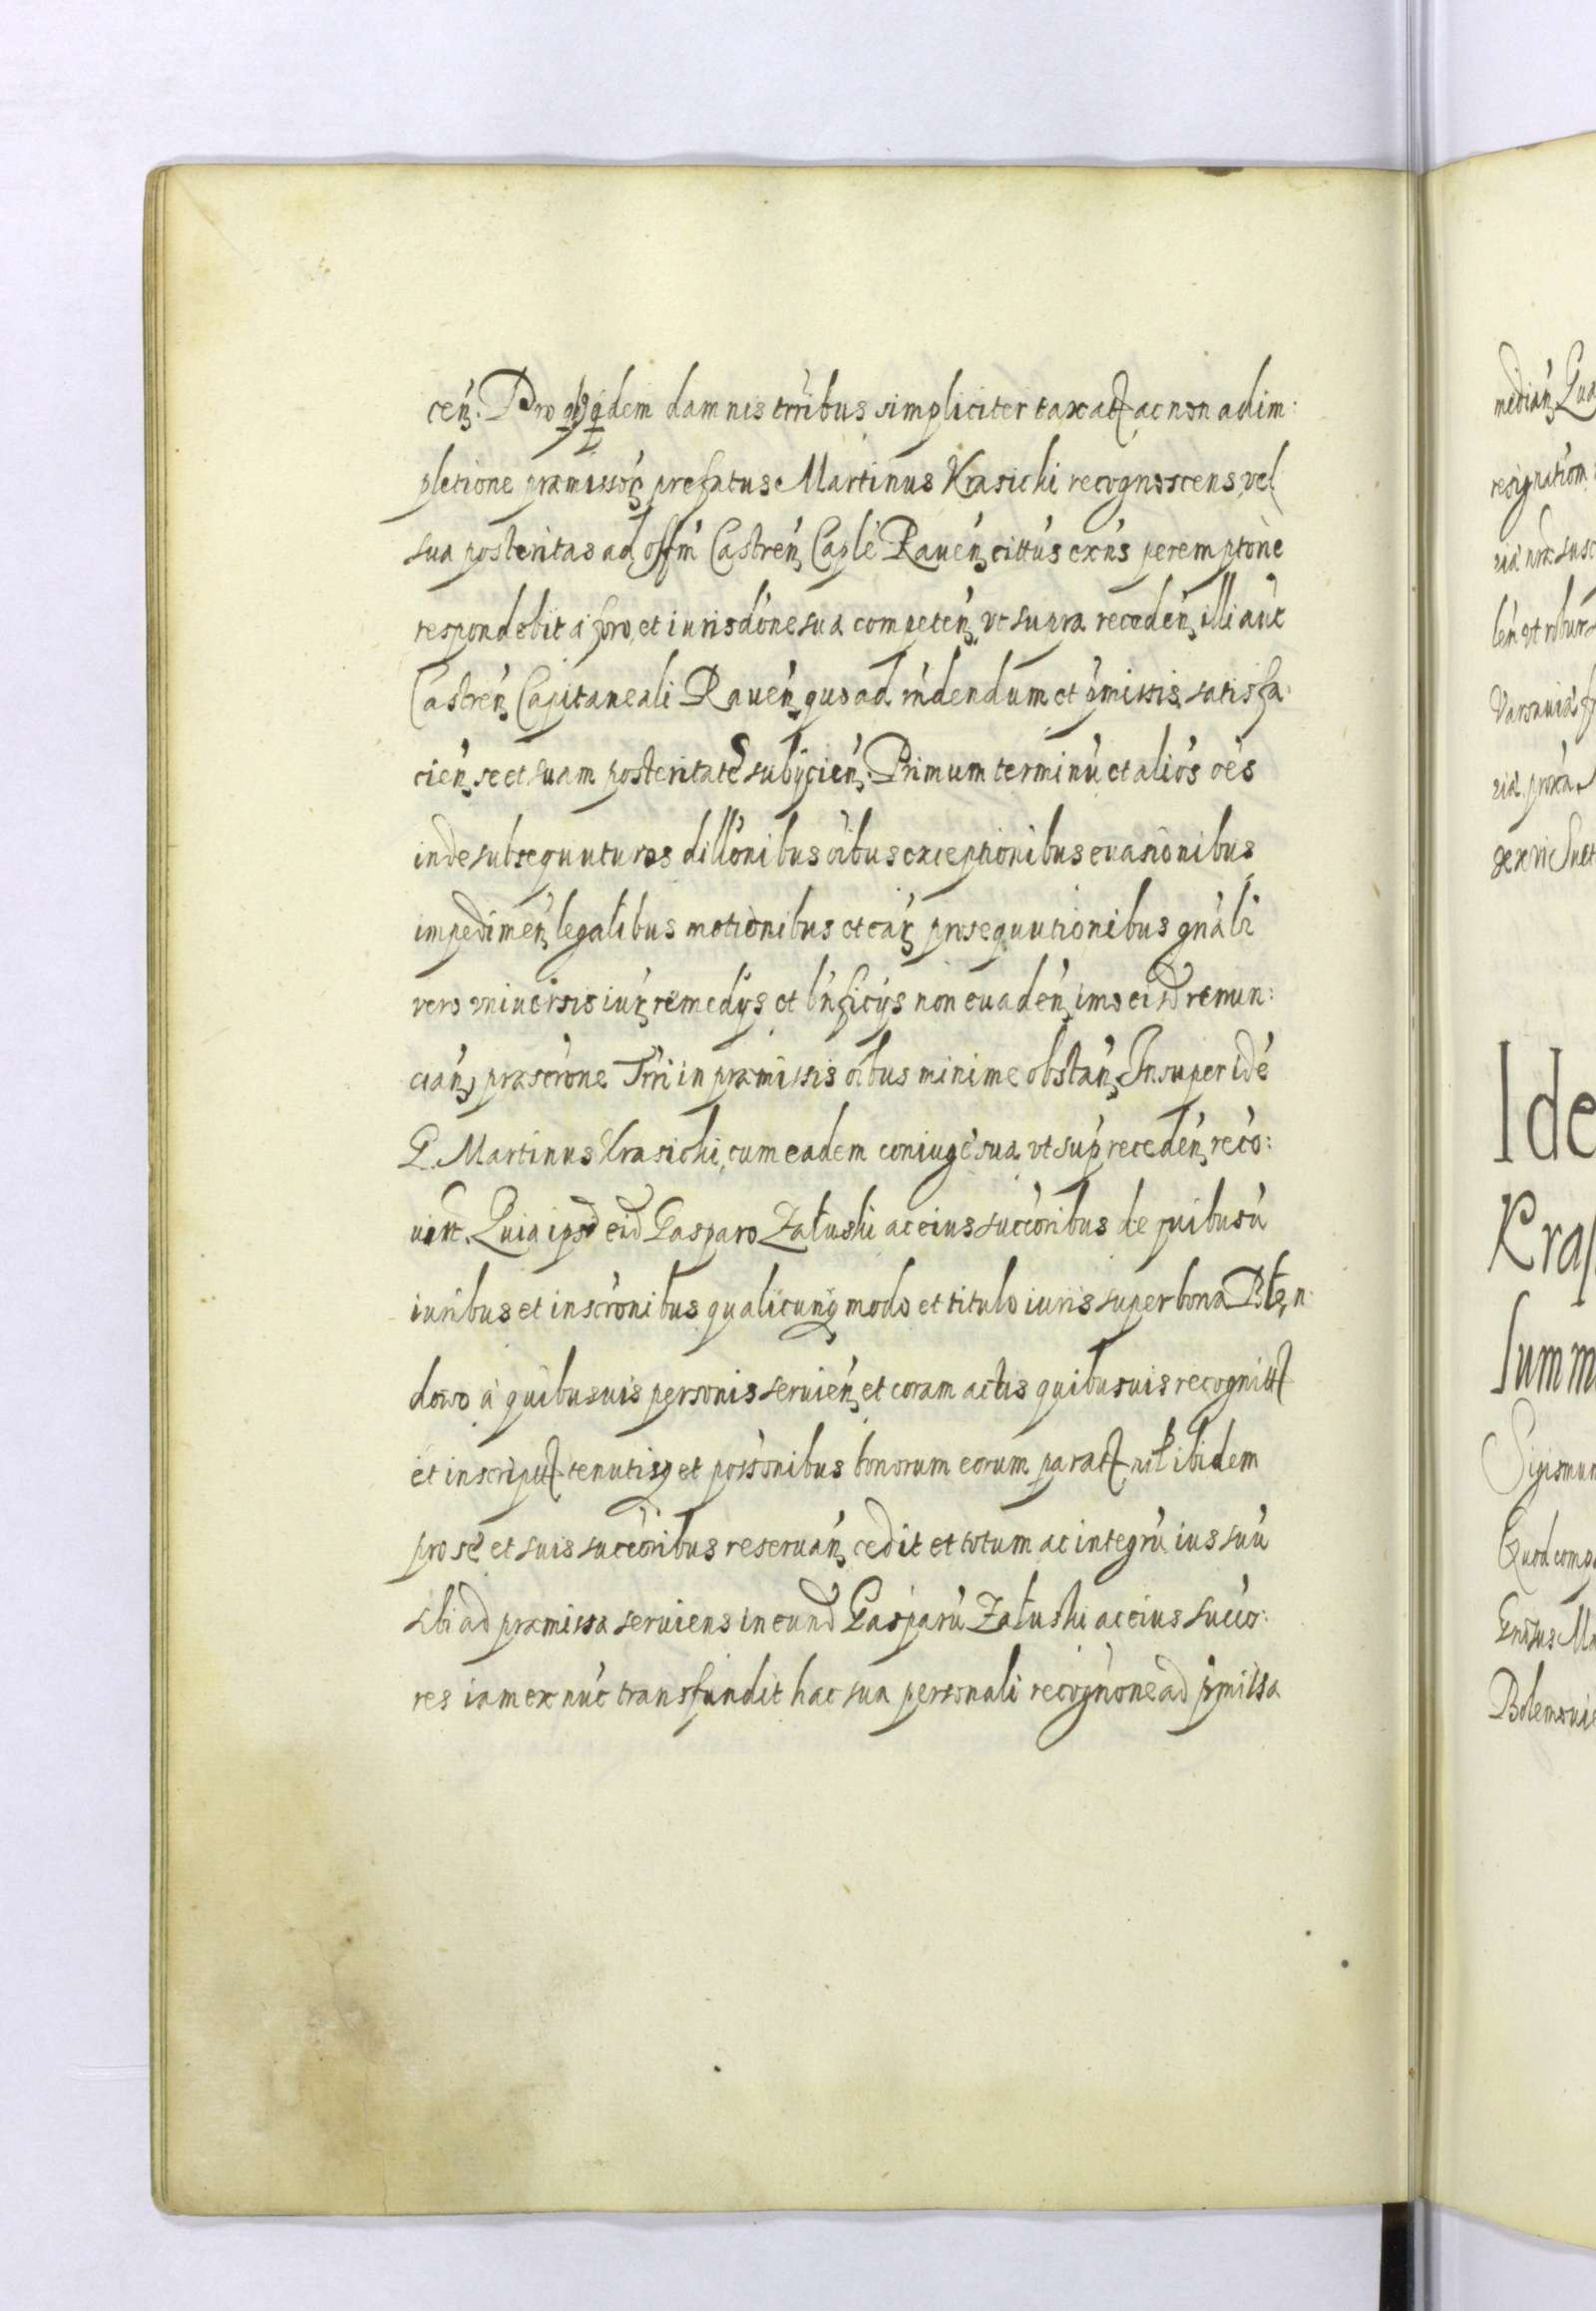 ceń. Pro qbq̱dem damnis trribus simpliciter taxatꝭ ac non adim:
pletione præmissoꝝ prefatus Martinus Krasichi recognoscens vel
sua posteritas ad offm̃ Castreń Caplẽ Raueń cittus exn̄s peremptone
respondebit a foro et iurisdone sua competeń vt supra recedeń illi aūt
Castreń Capitaneali Raueń quoad rn̄dendum et pmissis satisfa:
cień se et suam posteritatē subijcień. Primum terminū et alios oēs
inde subsequuturos dillonibus oībus exceptionibus euasionibus
impedimeń legalibus motionibus et eaꝝ prosequutionibus gnali
vero vniuersis iuꝝ remedijs et bn̄ficijs non euadeń imo eisd renun:
ciań præscrone Trri in præmissis oībus minime obstań. Insuper idē
G. Martinus Krasichi cum eadem coniuge sua vt sup recedeń reco:
uit. Quia ipse eid Gasparo Załuski ac eius succoribus de quibusū
iuribus et inscronibus qualicunq modo et titulo iuris super bona Błę n
dowo à quibusuis personis seruień et coram actis quibusuis recognitꝭ
et inscriptꝭ tenutisq et possonibus bonorum eorum paratꝭ nil ibidem
pro se et suis succoribus reseruań cedit et totum ac integrū ius suū
sibi ad præmissa seruiens in eund Gasparū Załuski ac eius succo:
res iam ex nūc transfundit hac sua personali recognone ad pmissa
Ide
Kras
Summ